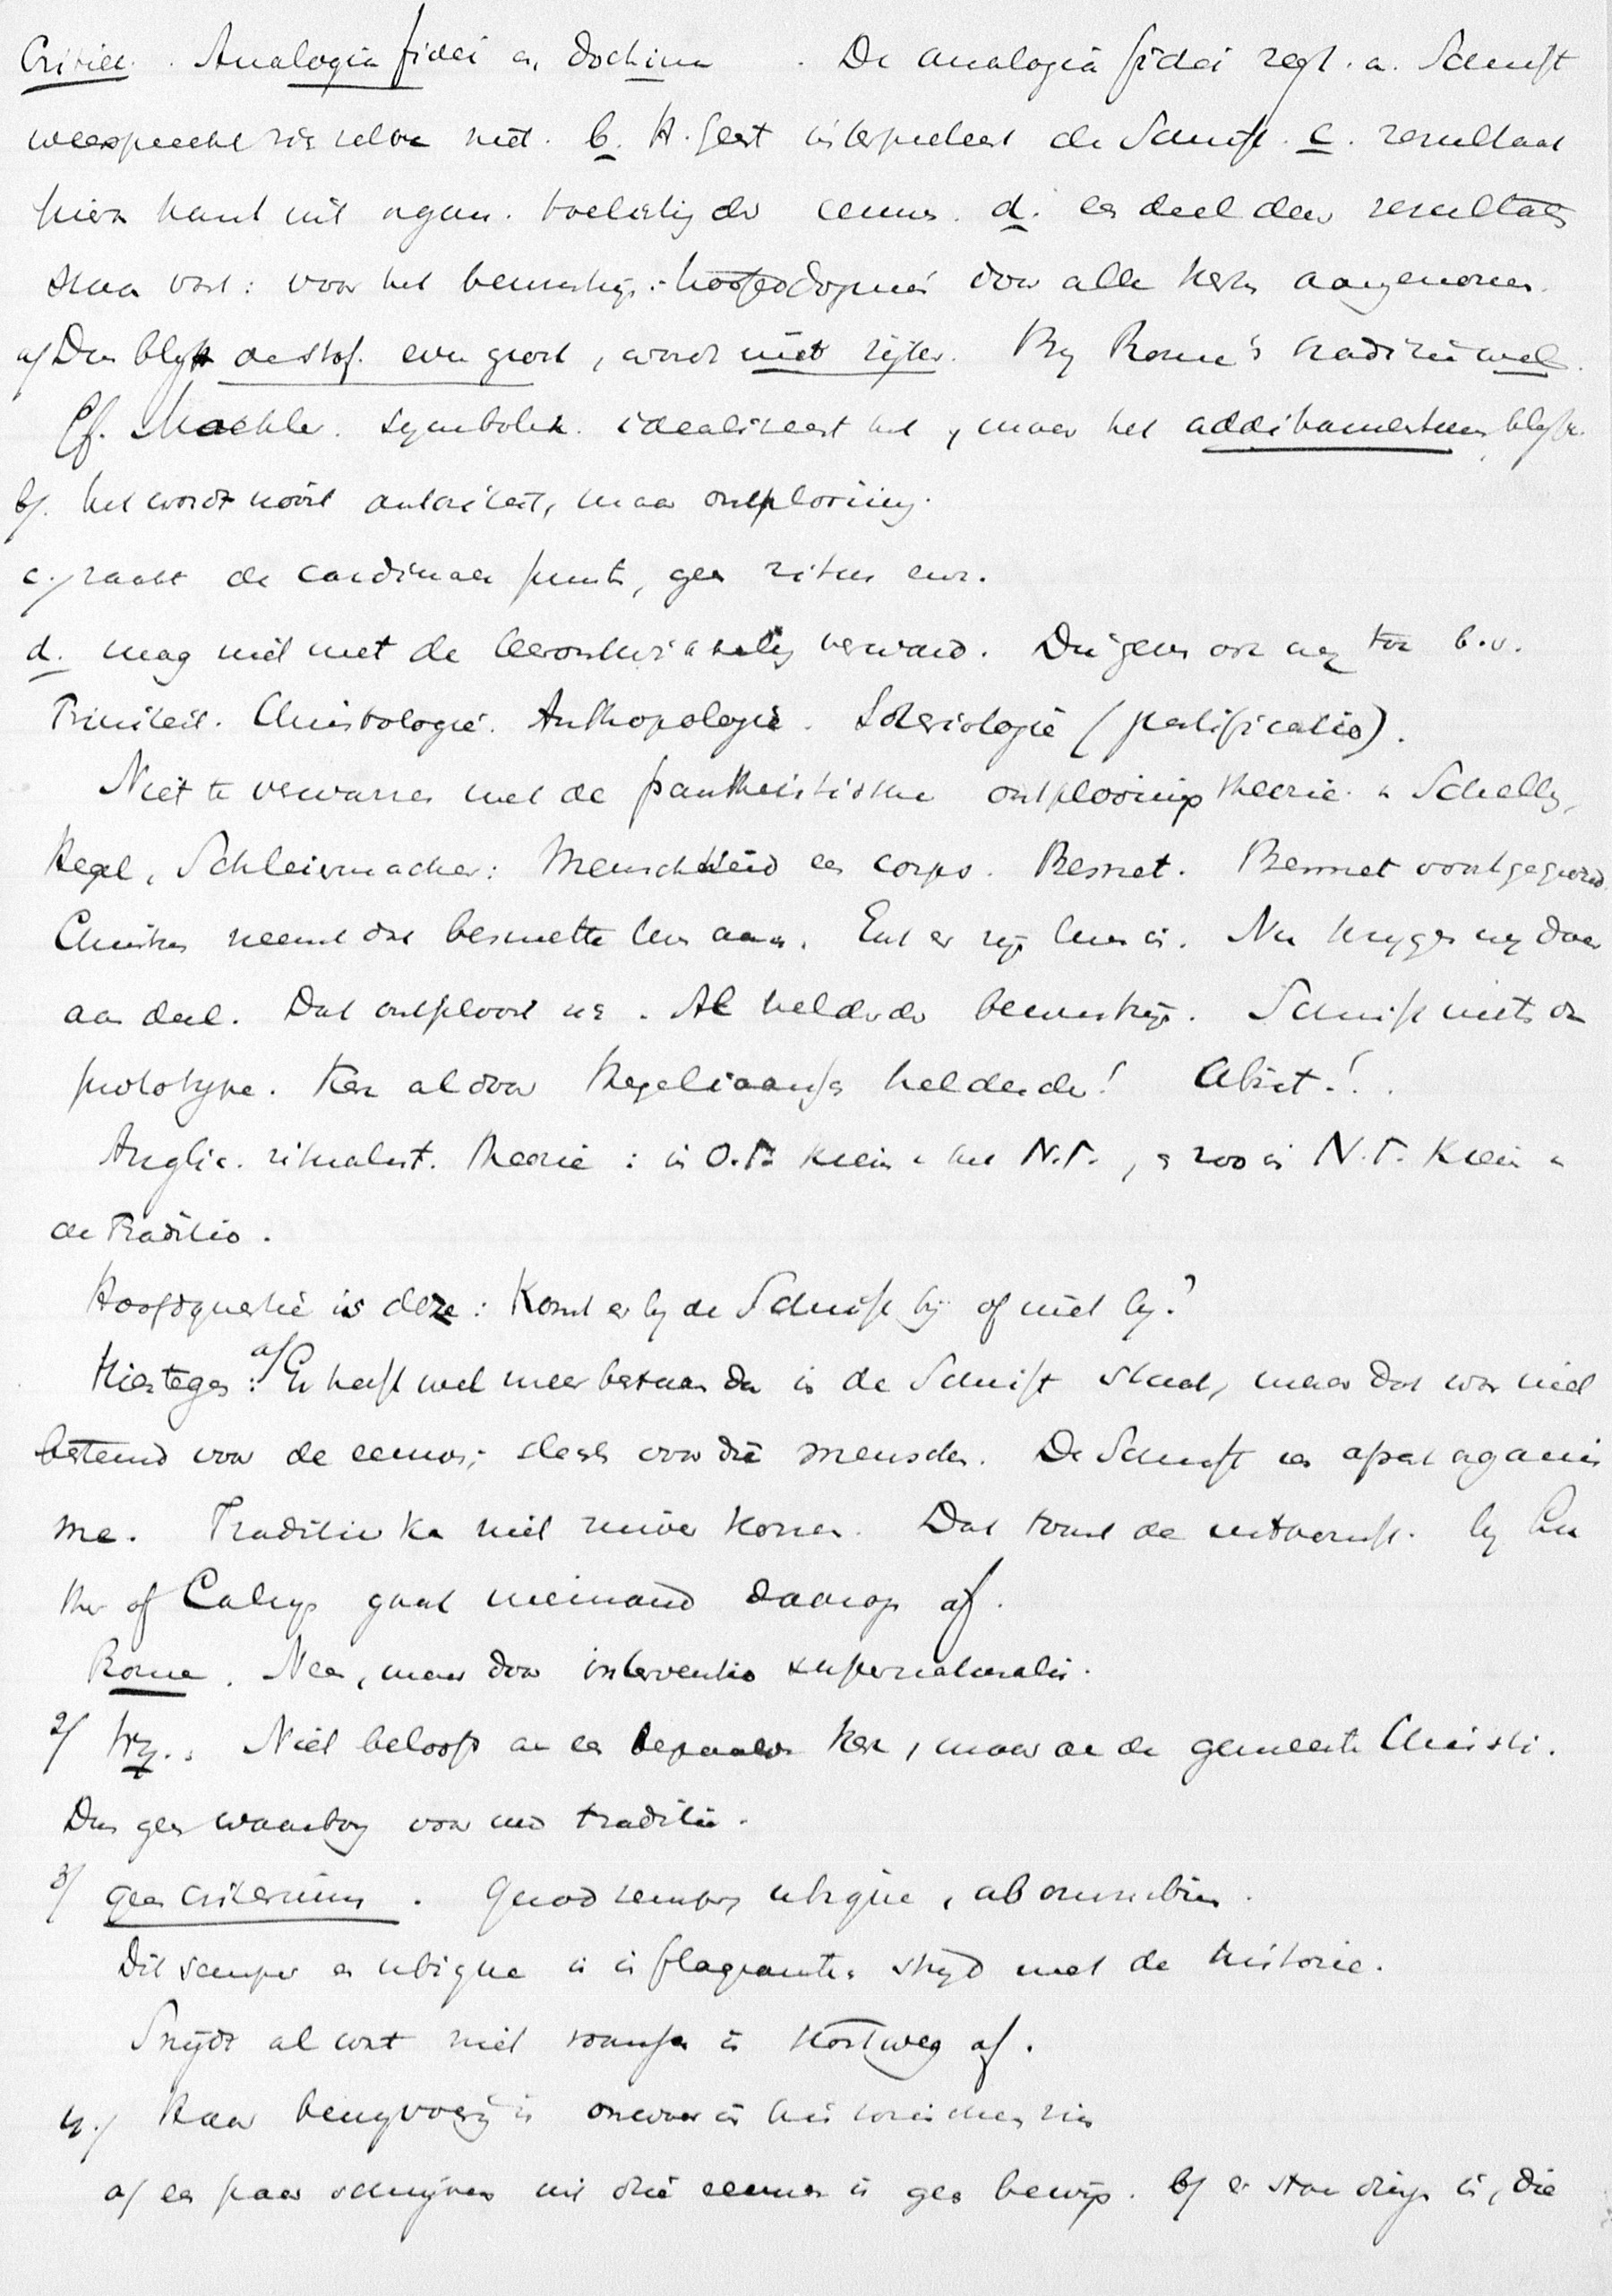 Critiek. Analogia fidei en doctrina. De analogia fidei zegt. a. Schrift
weerspreekt zich zelve niet. b. H. Geest interpreteert de Schrift. c. resultaat
hierv komt uit organ. der eeuwen. d. een deel der resultats
staan vast: voor het bewustzijn: hoofddogma's door alle kerken aangenomen.
a/ Dus blijft de stof even groot, wordt niet rijker. By Rome's traditie wel.
Cf. Moehler. Symboliek. idealiseert het, maar het additamentum blijft.
b/. het wordt nooit autoriteit, maar ontplooiing.
c./ raakt de cardinale punten, geen ritus enz.
d. mag niet met de leerontwikkeling verward. Die geven ook wy toe b.v.
Triniteit. Christologie. Anthropologie. Soteriologie (justificatio).
Niet te verwarren met de pantheistische ontplooiings theorie v Schelling,
Hegel, Schleiermacher: Menschheid een corps. Besmet. Besmet voortgegroeid.
Christus neemt dat besmette leven aan. Ent er zijn leven in. Nu krygen wy daar
aan deel. Dat ontplooit zich. Al helderder bewustzijn. Schrift niets dan
prototype. Kerk al door Hegeliaansch helderder! Abiit!.
Anglic. ritualist. theorie: in O.T. kiem v het N.T., en zoo in N.T. kiem v
de Traditio.
Hoofdquestie is deze: Komt er by de Schrift bij of niet by?
Hiertegen: a/ Er heeft wel meer bestaan dan in de Schrift staat, maar dat was niet
bestemd voor de eeuwen; slechts voor die menschen. De Schrift een apart organis
me. Traditie kan niet zuiver komen. Dat toont de uitkomst. by Lu
ther of Calvyn gaat niemand daarop af.
Rome. Neen, maar door interventio supernaturalis.
2/ Wy.: Niet beloofd aan een bepaalde kerk, maar aan de gemeente Christi.
Dus geen waarborg voor uw traditie.
3/ geen criterium. Quod semper, ubique, ab omnibus.
Dit semper en ubique is in flagranten stryd met de historie.
Snijdt al wat niet roomsch is kortweg af.
4./ Haar bewysvoering is onwaar in historischen zin
a/ een paar schrijvers uit drie eeuwen is geen bewijs. b/ er staan dingen in, die